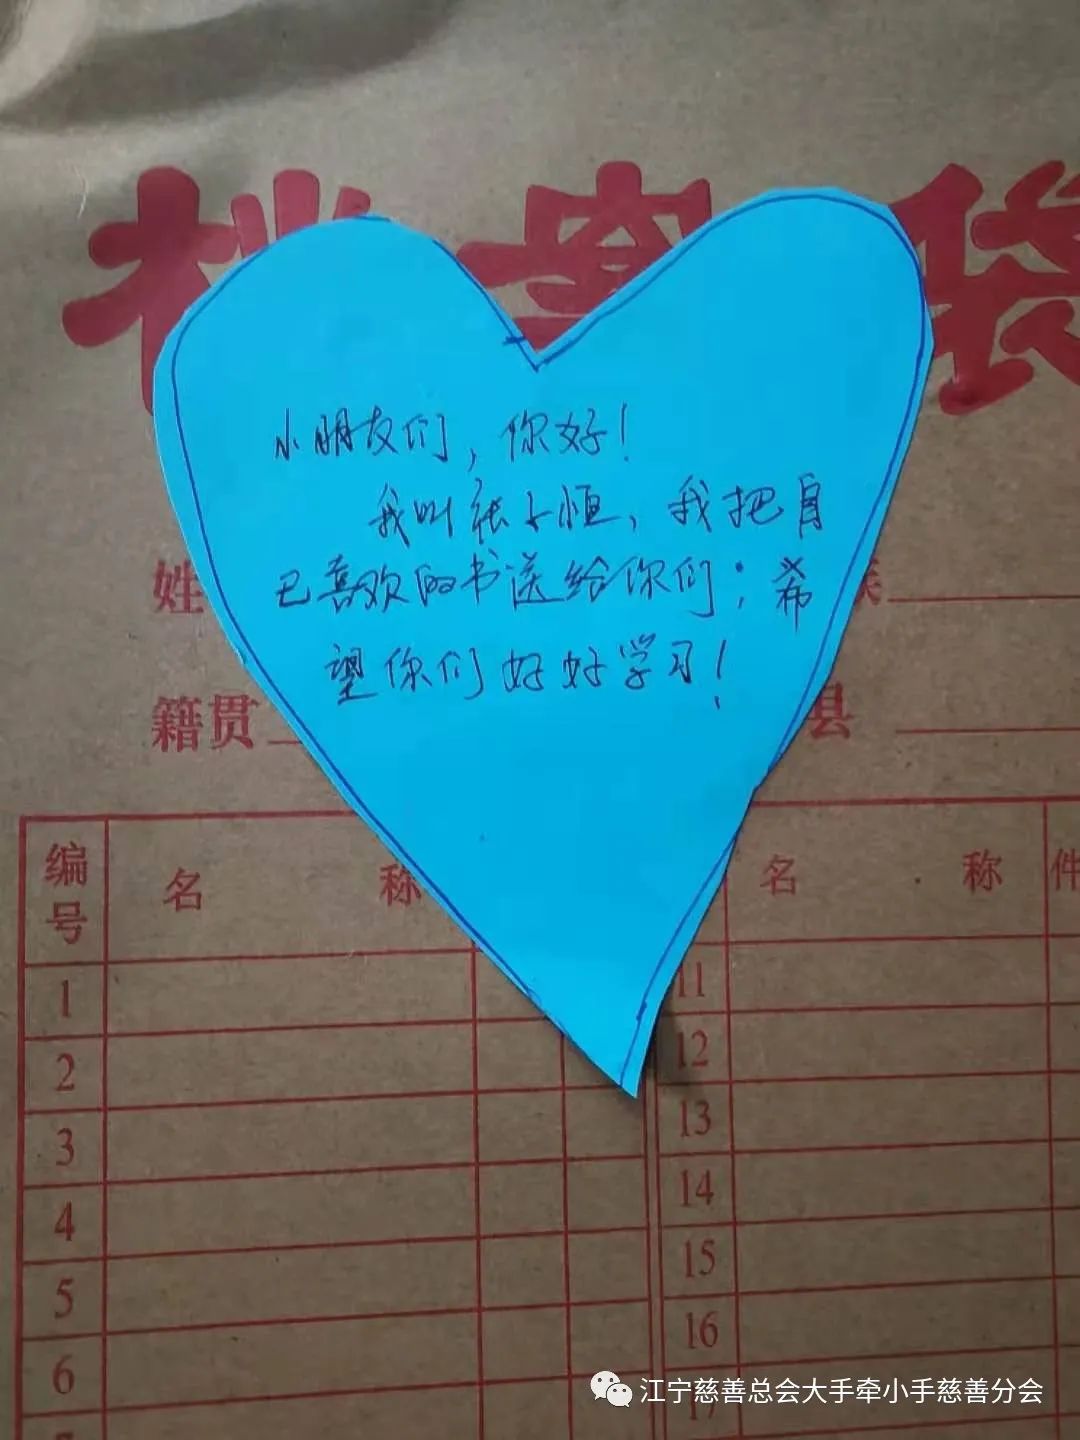 档案袋
小朋友们，你好！
我叫张子恒，我把自
己喜欢的书送给你们；希
望你们好好学习！
姓
族
籍贯
县
编号 名 称 名 称 件
1 11
2 12
3 13
4 14
5 15
6 16
17
江宁慈善总会大手牵小手慈善分会